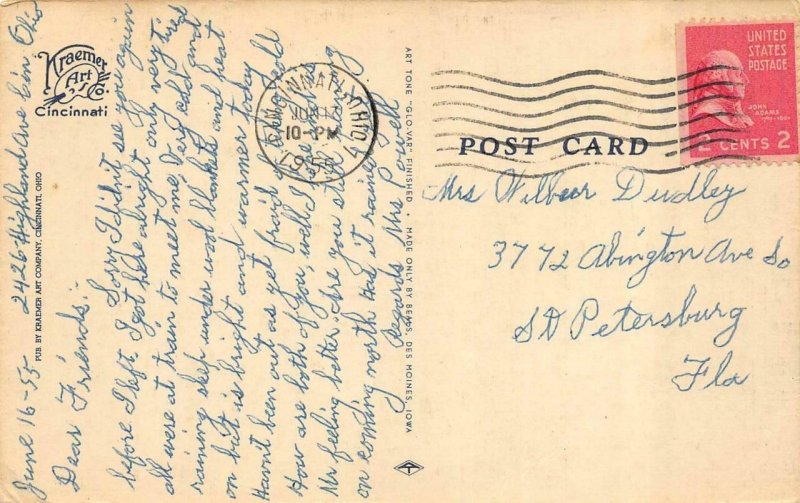 Kraemer
Art
Co.
Cincinnati
PUB. BY KRAEMER ART COMPANY, CINCINNATI, OHIO
June 16-55 2426 Highland Ave Cin Ohio
Dear Friends:-
Sorry I didn't see you again
before I left. I got here alright only very tired
all were at train to meet me. Very cold and
raining sleep under wool blankets and heat
on but is bright and warmer today
Havn't been out as yet fraid of cold
How are both of you, well I
Mr feeling better. Are you still
on coming north Had it rainey
Regards Mrs Powell
ART TONE "GLO-VAR" FINISHED • MADE ONLY BY BEALS, DES MOINES, IOWA
CINCINNATI, OHIO
JUN 17
10-PM
1955
UNITED
STATES
POSTAGE
JOHN
ADAMS
2 CENTS 2
POST CARD
Mrs Wilbur Dudley
3772 Abington Ave So
St Petersburg
Fla